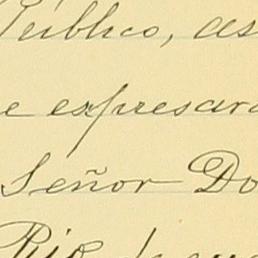 Público, as
e expresara
Señor Do
Rio